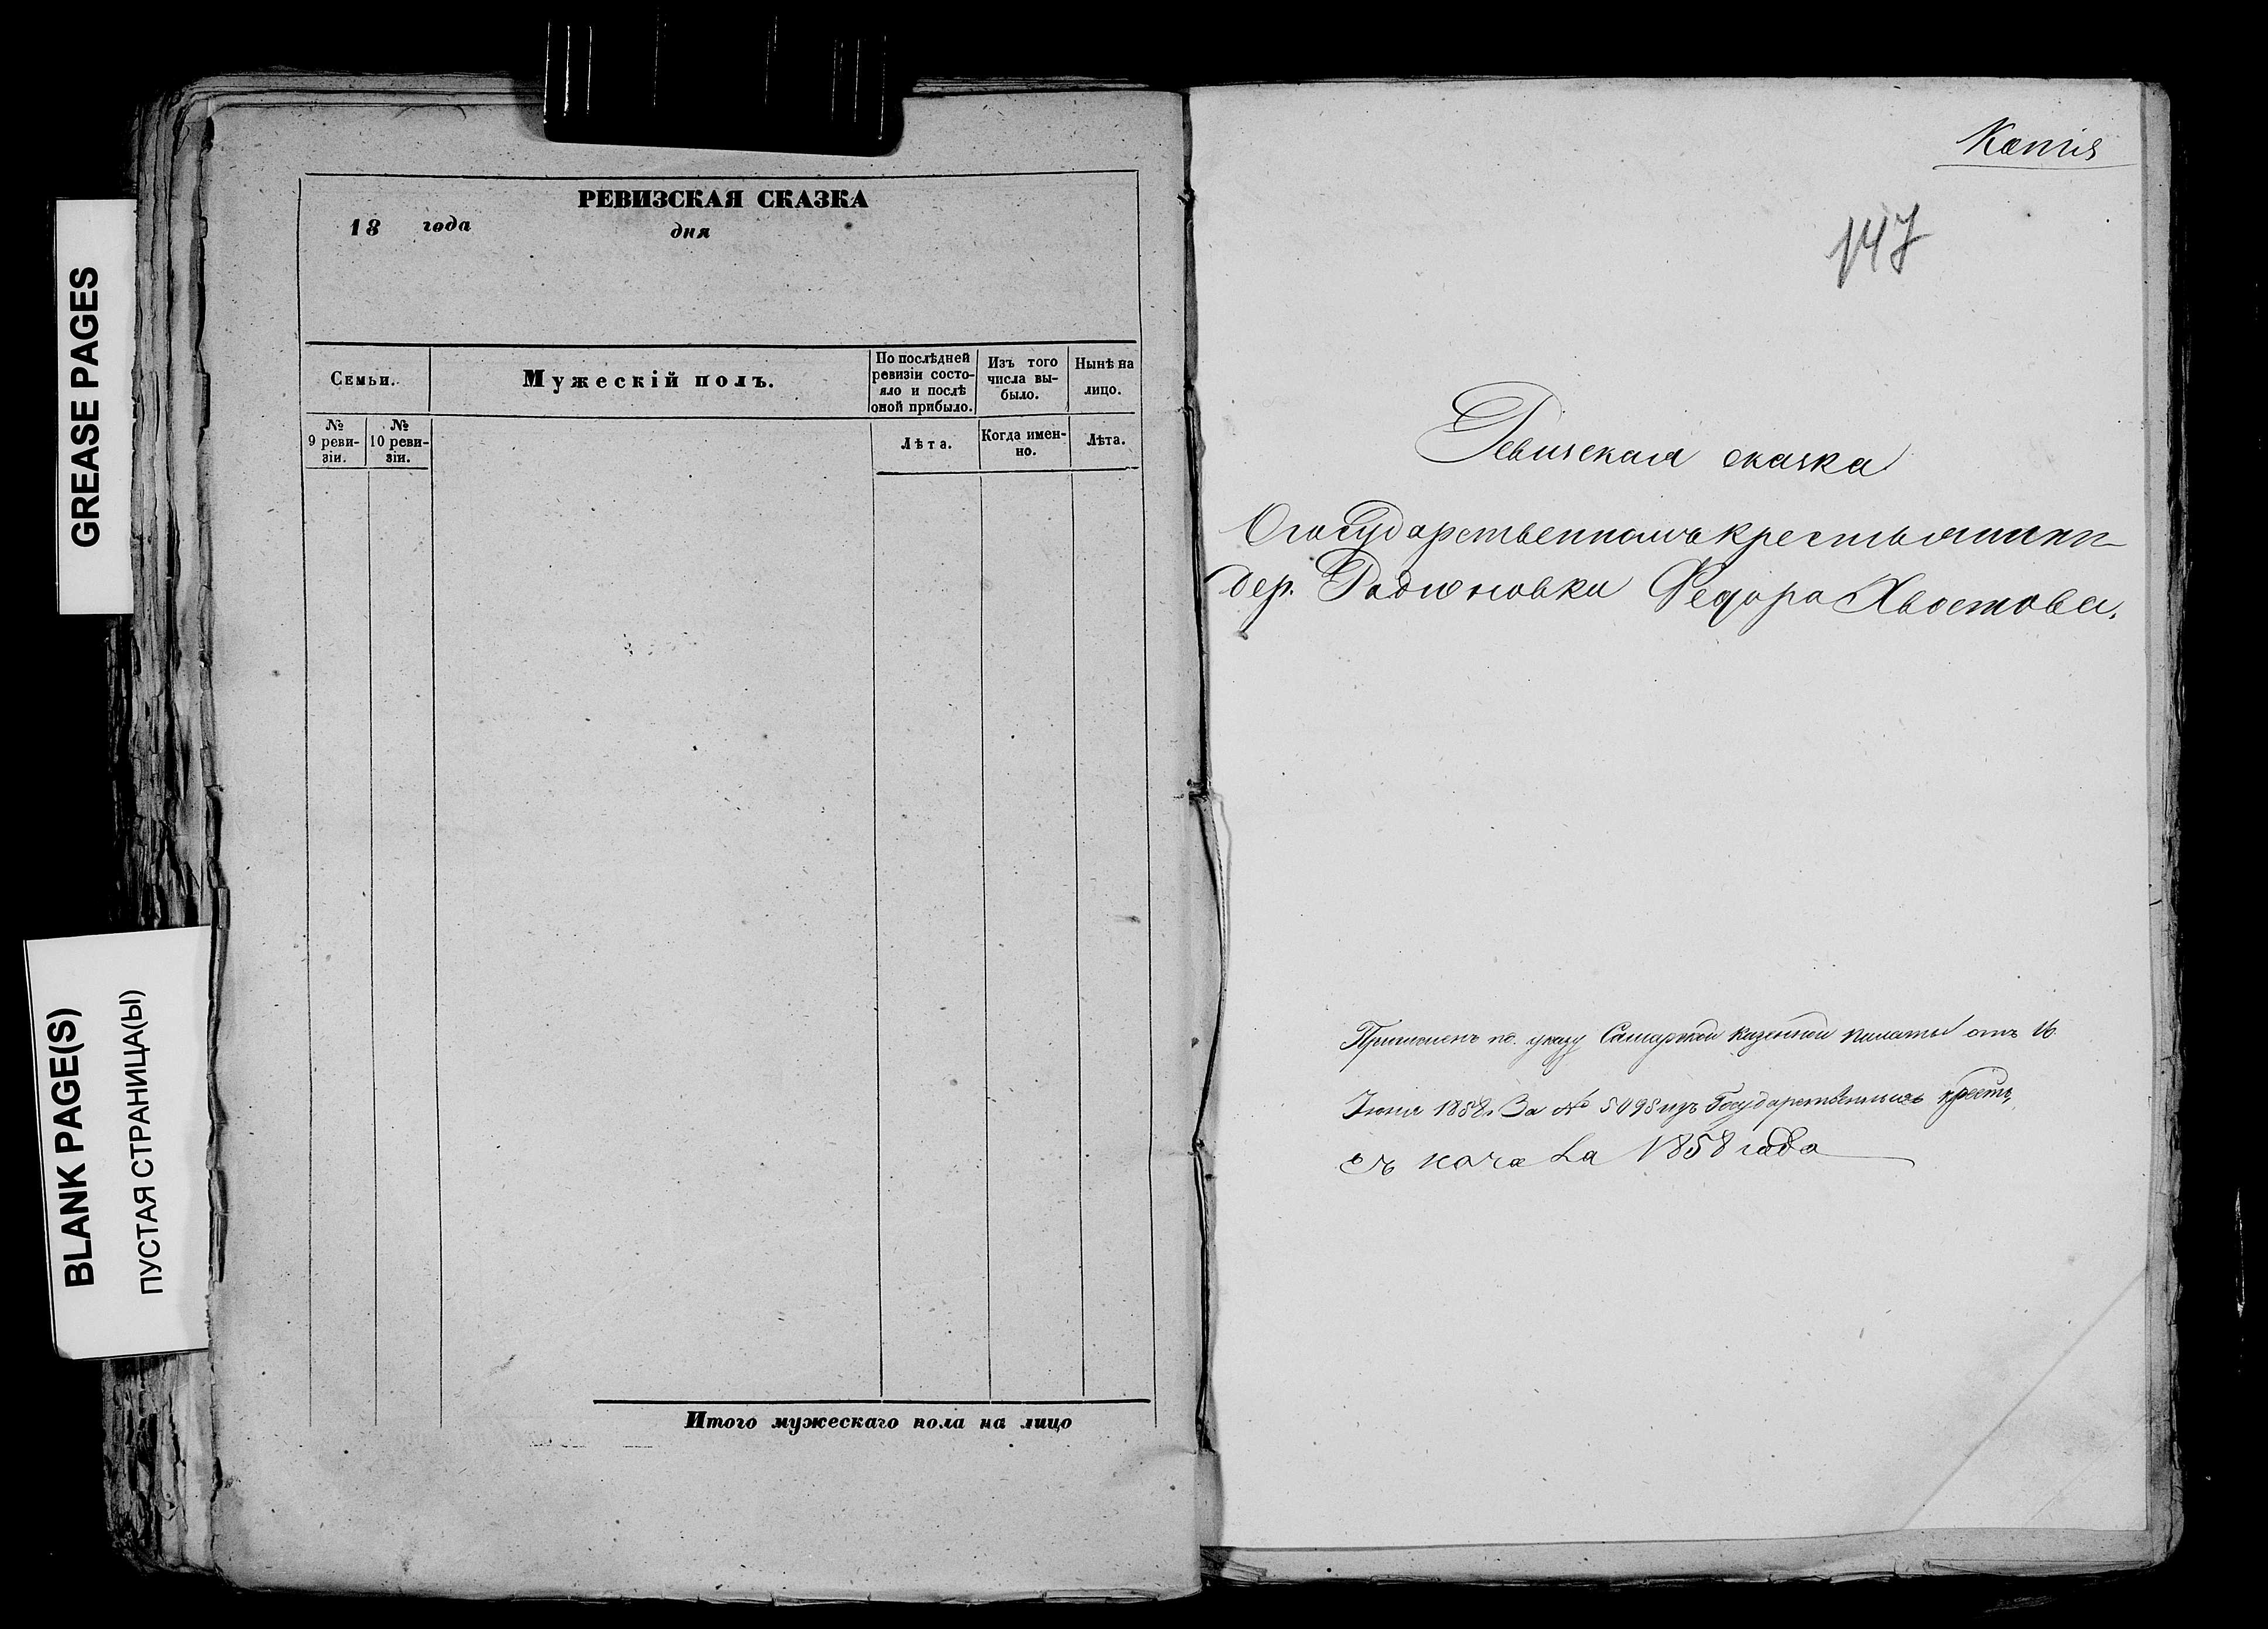 GREASE PAGES
BLANK PAGE(S)
ПУСТАЯ СТРАНИЦА(Ы)
РЕВИЗСКАЯ СКАЗКА
18 года дня
Семьи.
Мужескій полъ.
По послѣдней
ревизіи состо-
яло и послѣ
оной прибыло.
Изъ того
числа вы-
было.
Нынѣ на
лицо.
№
9 реви-
зіи.
№
10 реви-
зіи.
Лѣта.
Когда имен-
но.
Лѣта.
Итого мужескаго пола на лицо
Копія
147
Ревизская сказка
О государственномъ крестьянинѣ
дер. Родионовки Федора Хвостова.
по указу Самарской Казенной Палаты отъ 16
Июня 1858 За № 5095 изъ Государственныхъ крестъ,
съ начала 1858 года